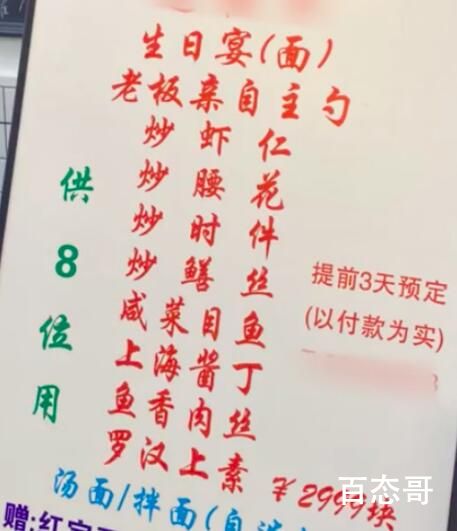 生日宴(面)
老板亲自主勺
炒虾仁
炒腰花
炒时件
炒鳝丝
咸菜目鱼
上海酱丁
鱼香肉丝
罗汉上素
供8位用
提前3天预定
(以付款为实)
￥2999块
汤面/拌面(自选
赠:红
百态哥